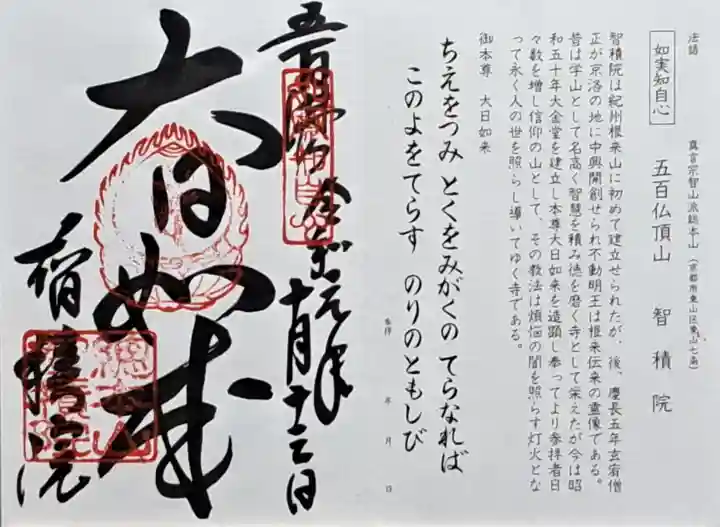 法語
如実知自心
真言宗智山派総本山(京都府東山区東山七条)
五百仏頂山 智積院
智積院は紀州根来山に初めて建立せられたが、後、慶長五年玄宥僧
正が京洛の地に中興開創せられ不動明王は根来伝来の霊像である。
昔は学山として名高く智慧を積み徳を磨く寺として栄えたが今は昭
和五十年大金堂を建立し本尊大日如来を造顕し奉ってより参拝者日
々数を増し信仰の山として、その教法は煩悩の闇を照らす灯火とな
って永く人の世を照らし導いてゆく寺である。
御本尊 大日如来
ちえをつみ とくをみがくの てらなれば
このよをてらす のりのともしび
奉拝 年 月 日
十月十三日
大日如来
智積院